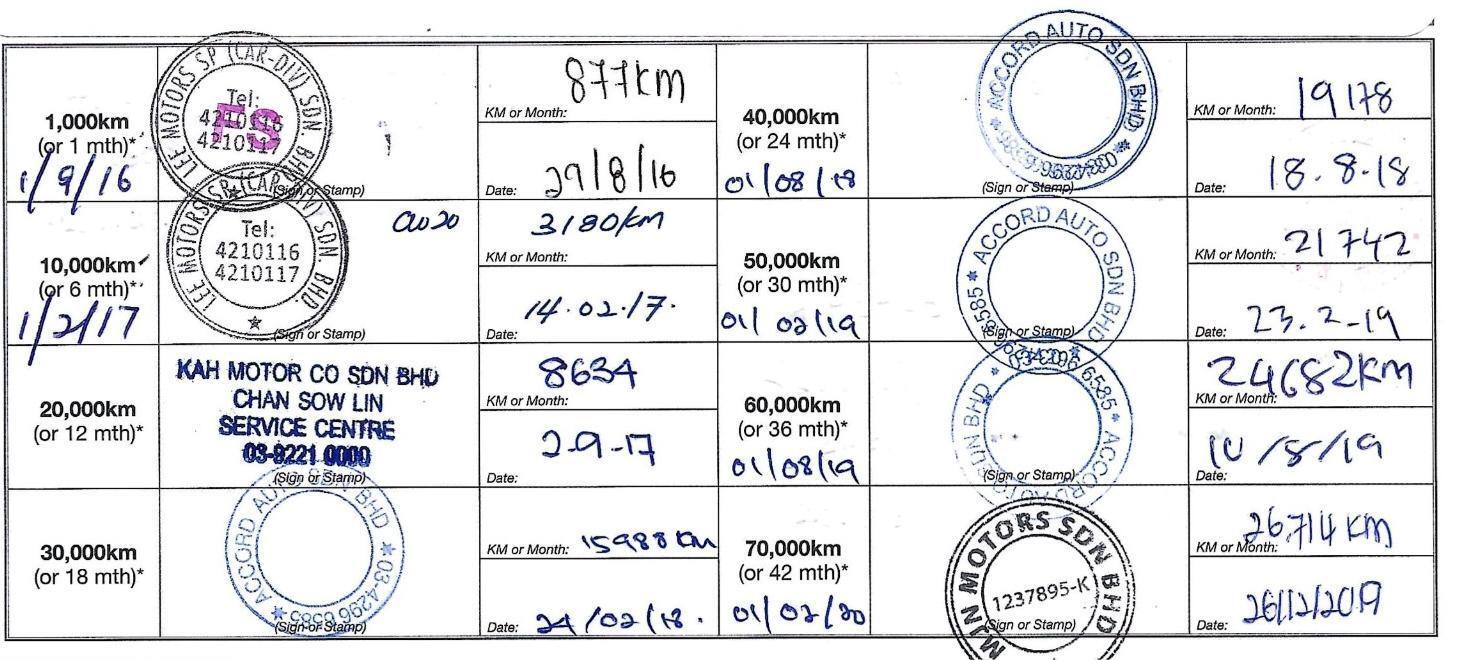 1,000km
(or 1 mth)*
1/9/16
LEE MOTORS SP (CAR-DIV) SDN BHD
Tel:
4210116
4210117
FS
(Sign or Stamp)
877km
KM or Month:
Date: 29/8/16
40,000km
(or 24 mth)*
01/08/18
ACCORD AUTO SDN BHD
(Sign or Stamp)
KM or Month: 19178
Date: 18.8.18
10,000km
(or 6 mth)*
1/2/17
LEE MOTORS SP (CAR-DIV) SDN BHD
Tel:
4210116
4210117
(Sign or Stamp)
3180km
KM or Month:
Date: 14.02.17.
50,000km
(or 30 mth)*
01/02/19
ACCORD AUTO SDN BHD
(Sign or Stamp)
KM or Month: 21742
Date: 23.2-19
20,000km
(or 12 mth)*
KAH MOTOR CO SDN BHD
CHAN SOW LIN
SERVICE CENTRE
03-9221 0000
(Sign or Stamp)
8634
KM or Month:
Date: 2-9-17
60,000km
(or 36 mth)*
01/08/19
ACCORD AUTO SDN BHD
(Sign or Stamp)
24682KM
KM or Month:
Date: 10/8/19
30,000km
(or 18 mth)*
ACCORD AUTO SDN BHD * 03-4296 6585 *
(Sign or Stamp)
KM or Month: 15988 KM
Date: 24/02/18.
70,000km
(or 42 mth)*
01/02/20
MJN MOTORS SDN BHD
1237895-K
(Sign or Stamp)
26,714 KM
KM or Month:
Date: 26/12/2019